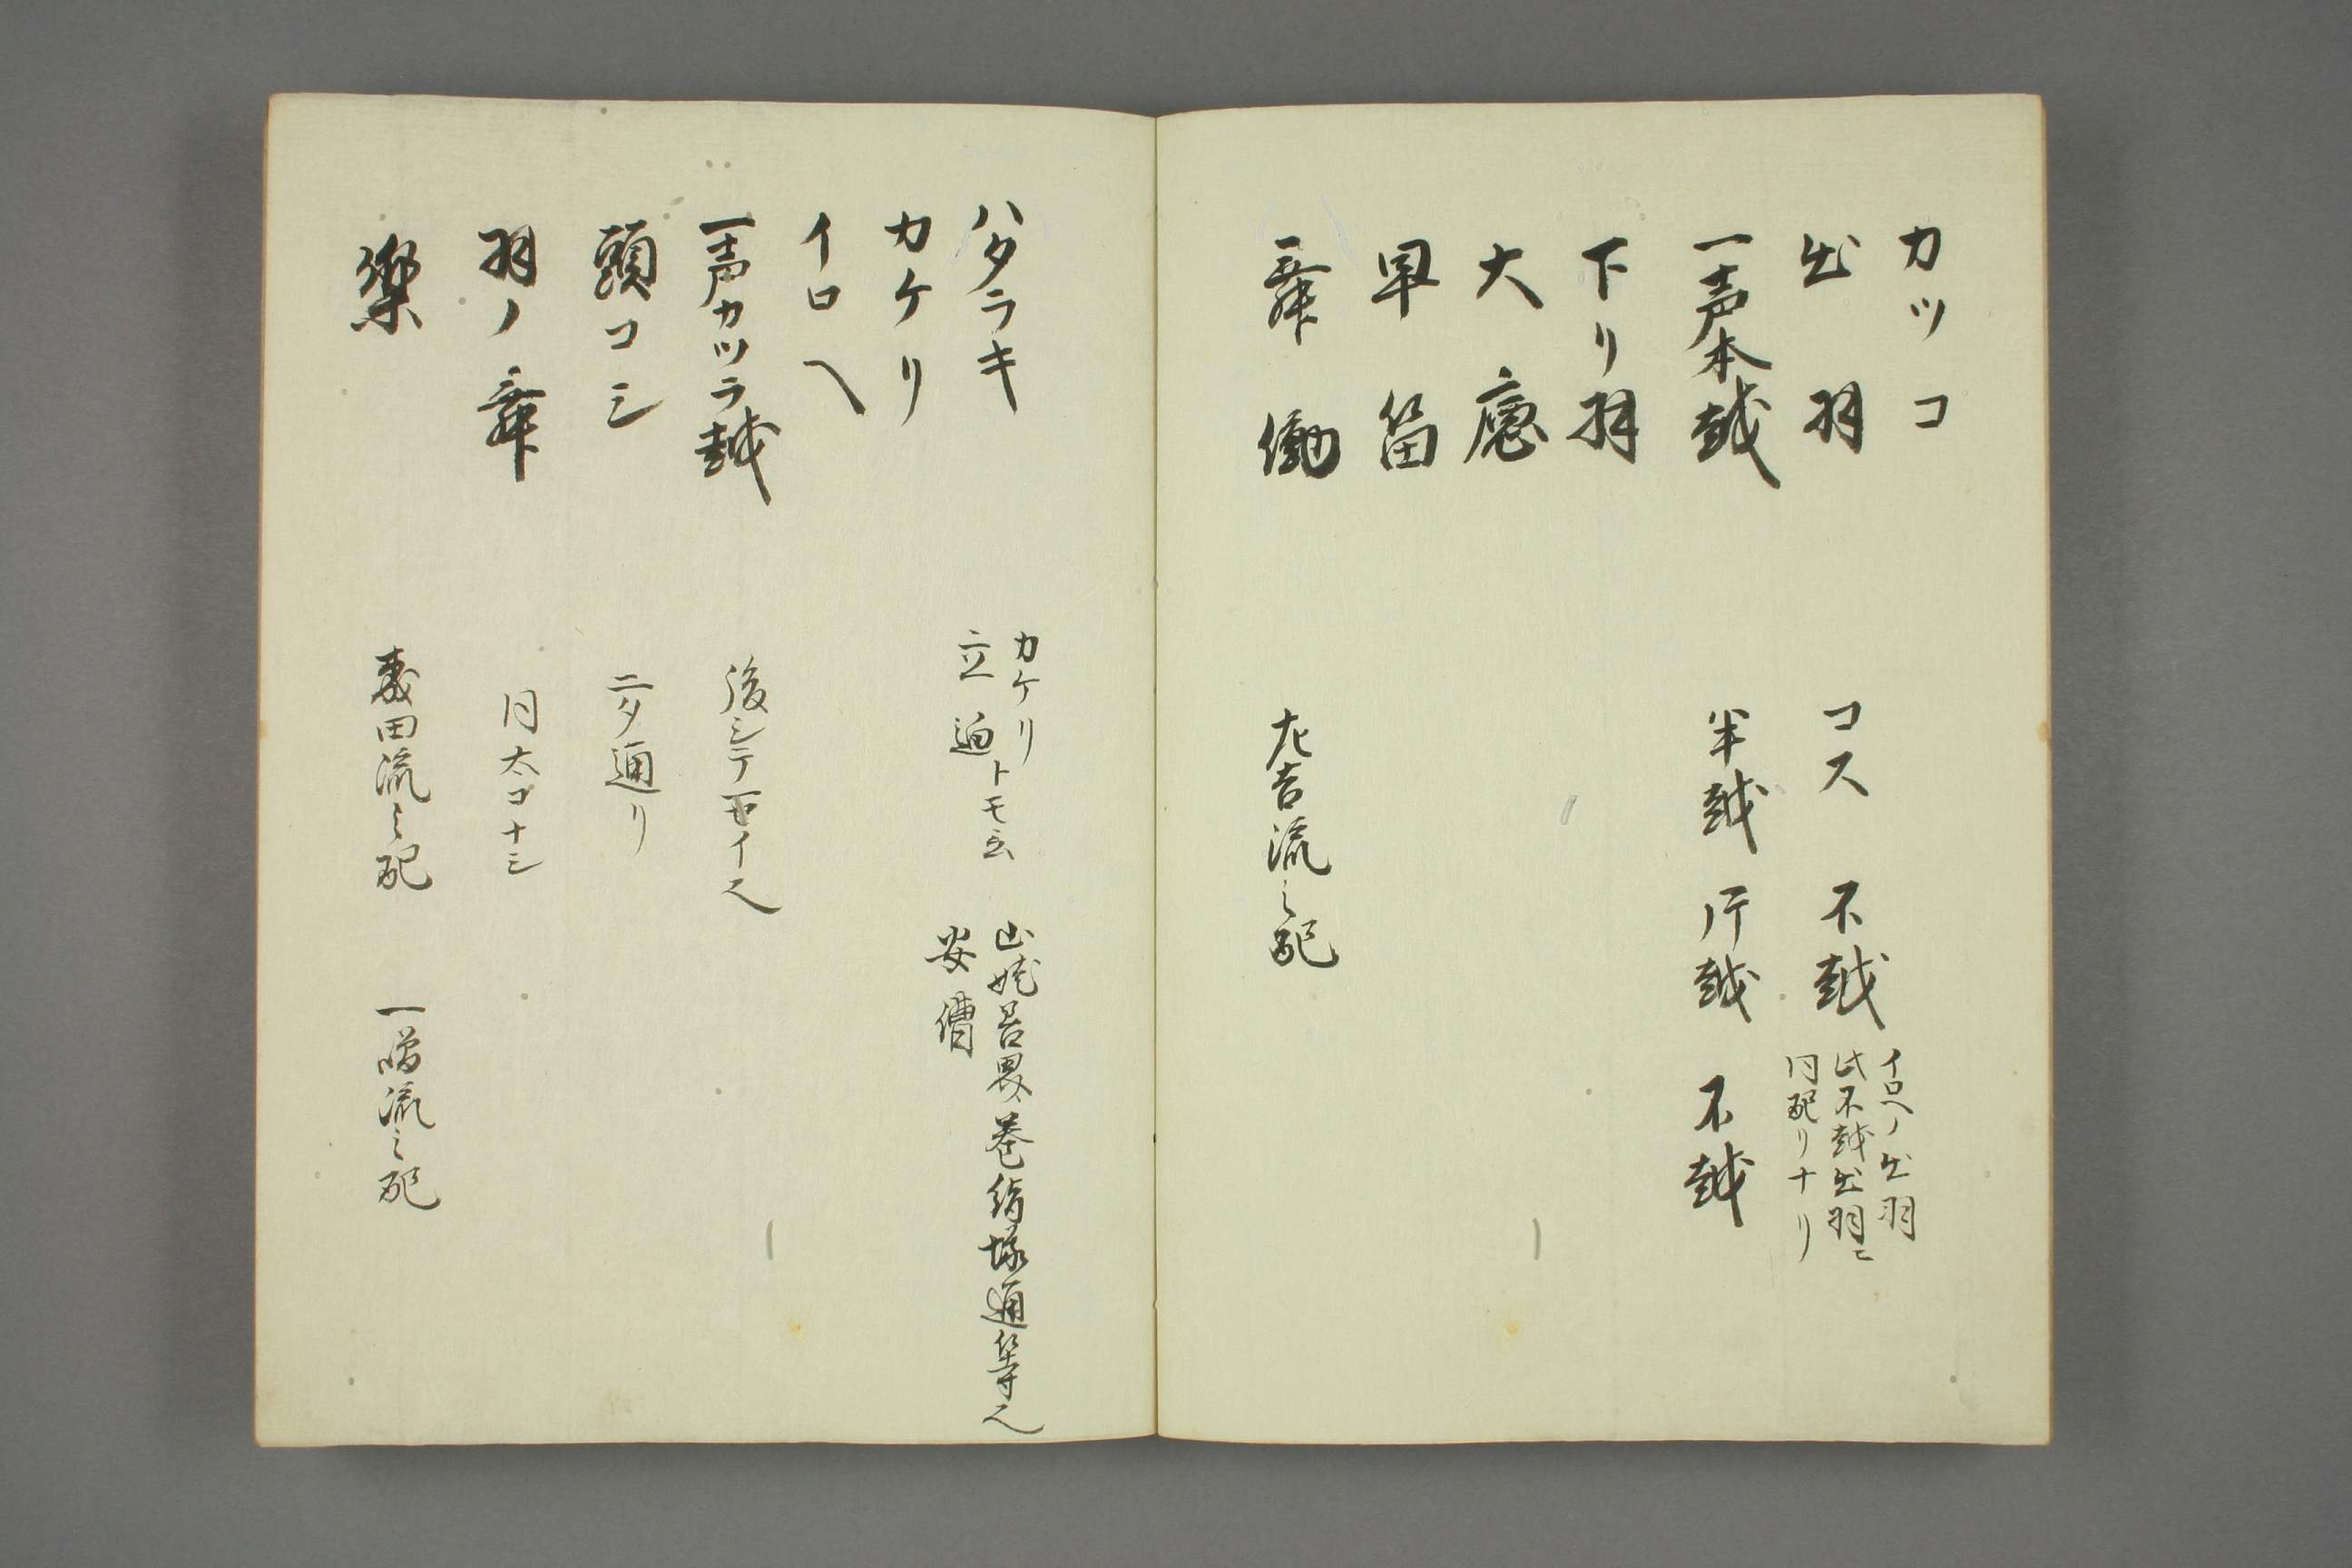 カツコ
出羽　コス　不越　イロヘノ出羽
此不越出羽ニ
同配リナリ
一声本越　半越　片越　不越
下リ羽
大癋
早笛
舞働　左吉流之配
ハタラキ　カケリ
立廻トモ云　山姥　善界　巻絹　塚　通等也
安
カケリ
イロヘ
一声カツラ越　後シテ
頭コシ　二タ通リ
羽ノ舞　同太コナシ
楽　森田流之配　一噌流之配